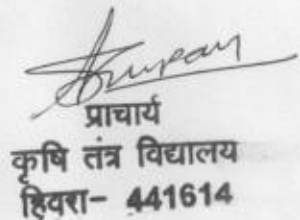 प्राचार्य
कृषि तंत्र विद्यालय
हिवरा- 441614